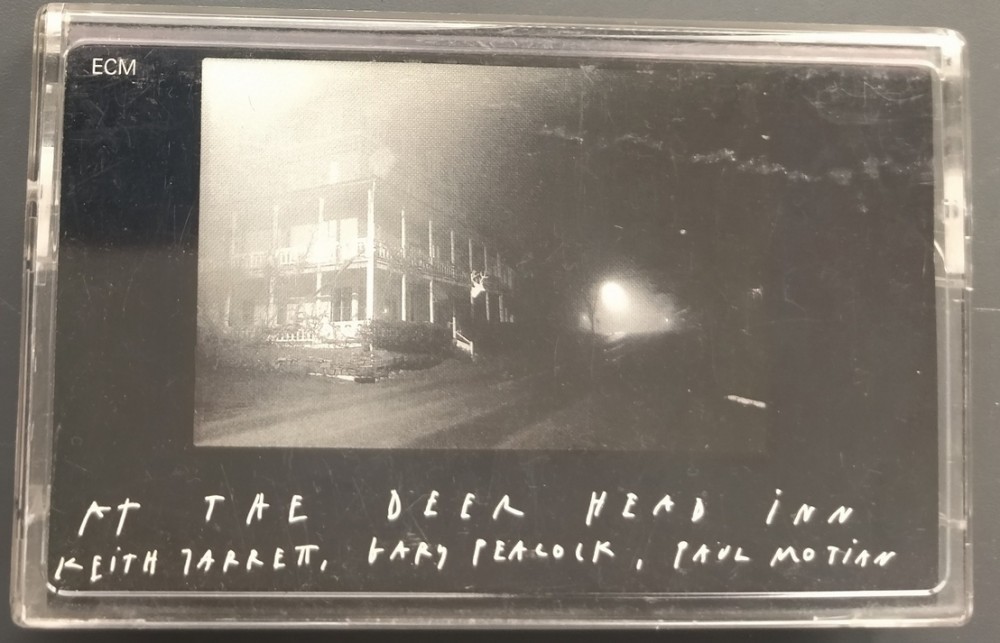 ECM
AT THE DEER HEAD iNN
KEiTH JARRETT, GARY PEACOCK, PAUL MOTiAN